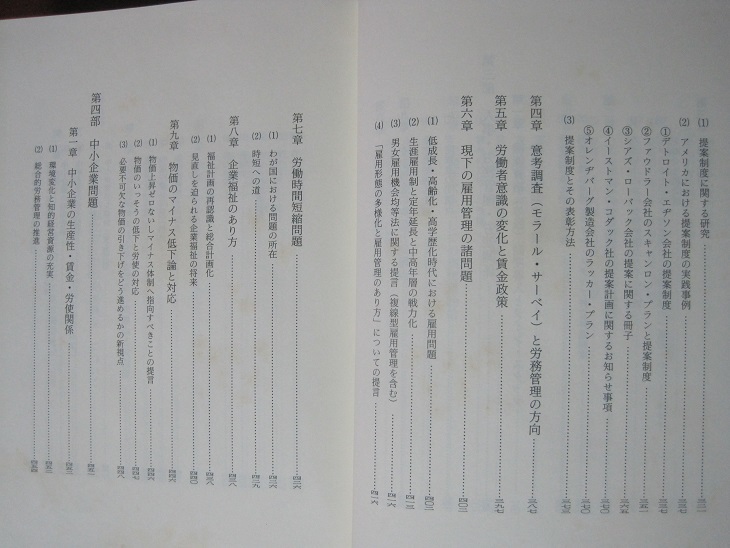 (1) 提案制度に関する研究……三三一
(2) アメリカにおける提案制度の実践事例……三三七
①デトロイト・エヂソン会社の提案制度……三三七
②ファウドラー会社のスキャンロン・プランと提案制度……三五一
③シアズ・ローバック会社の提案に関する冊子……三六五
④イーストマン・コダック社の提案計画に関するお知らせ事項……三七〇
⑤オレンヂバーグ製造会社のラッカー・プラン……三七〇
(3) 提案制度とその表彰方法……三七五
第四章 意考調査(モラール・サーベイ)と労務管理の方向……三八七
第五章 労働者意識の変化と賃金政策……三九七
第六章 現下の雇用管理の諸問題……四〇三
(1) 低成長・高齢化・高学歴化時代における雇用問題……四〇三
(2) 生涯雇用制と定年延長と中高年層の戦力化……四一三
(3) 男女雇用機会均等法に関する提言(複線型雇用管理を含む)……四一六
(4) 「雇用形態の多様化と雇用管理のあり方」についての提言……四一六
第七章 労働時間短縮問題……四二六
(1) わが国における問題の所在……四二六
(2) 時短への道……四二九
第八章 企業福祉のあり方……四三八
(1) 福祉計画の再認識と総合計画化……四三八
(2) 見直しを迫られる企業福祉の将来……四四〇
第九章 物価のマイナス低下論と対応……四四六
(1) 物価上昇ゼロないしマイナス体制へ指向すべきことの提言……四四六
(2) 物価のいっそうの低下と労使の対応……四四七
(3) 必要不可欠な物価の引き下げをどう進めるかの新視点……四四八
第四部 中小企業問題……四五一
第一章 中小企業の生産性・賃金・労使関係……四五三
(1) 環境変化と知的経営資源の充実……四五三
(2) 総合的労務管理の推進……四五四